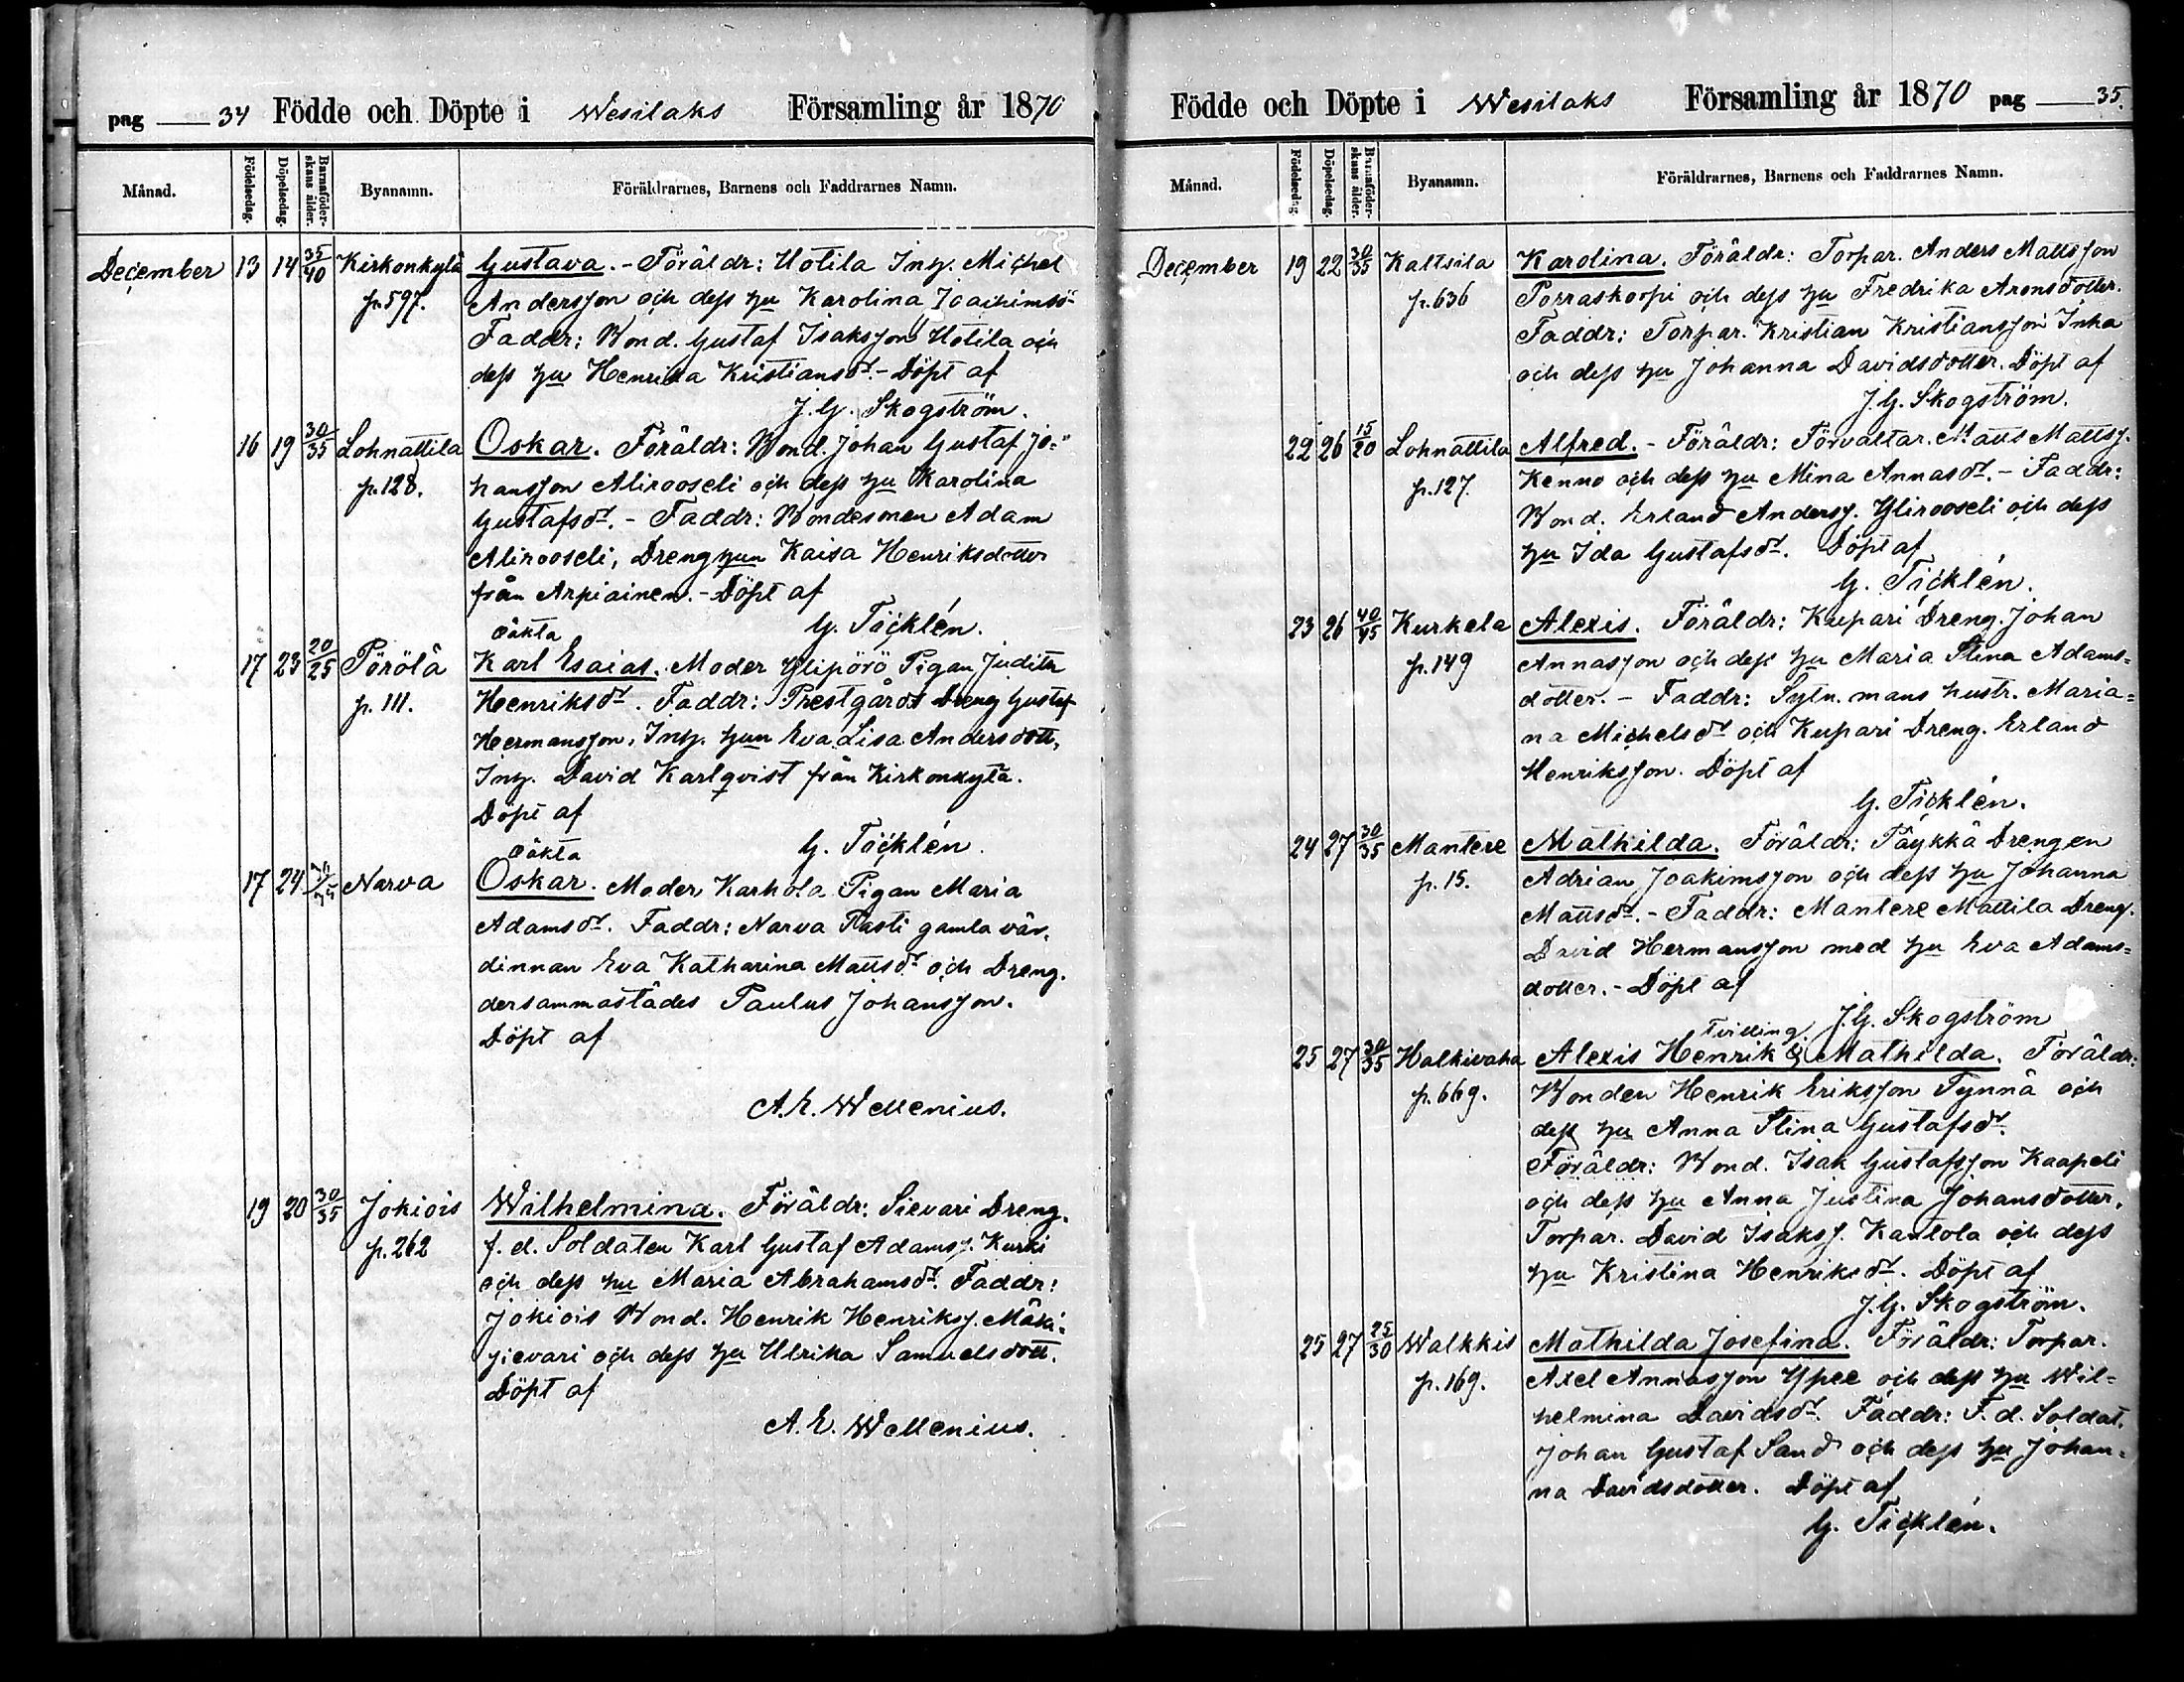 pag 34 Födde och Döpte i Wesilaks Församling år 1870
Månad. Födelsedag. Döpelsedag. Barnaföderskans ålder. Byanamn. Föräldrarnes, Barnens och Faddrarnes Namn.
December 13 14 35/40 Kirkonkylä Gustava. - Föräldr: Hotila Inh. Michel
p. 597. Andersson och dess hu Karolina Joachimsd
Faddr: Bond. Gustaf Isaksson Hotila och
dess hu Henrika Kristiansdr. - Döpt af
J. G. Skogström.
16 19 30/35 Lohnattila Oskar. Föräldr: Bond. Johan Gustaf Jo=
p. 128. hansson Alirooseli och dess hu Karolina
Gustafsdr. - Faddr: Bondesonen Adam
Alirooseli, Dreng hun Kaisa Henriksdotter
från Arpiainen. - Döpt af
G. Ticklén.
oäkta
17 23 20/25 Pörölä Karl Esaias. Moder Ylipörö Pigan Judith
p. 111. Henriksdr. Faddr: Prestgårds Dreng Gustaf
Hermansson, Inh. hun Eva Lisa Andersdott,
Inh. David Karlqvist från Kirkonkylä.
Döpt af
G. Ticklén.
oäkta
17 24 Narva Oskar. Moder Karhola Pigan Maria
Adamsdr. Faddr: Narva Rasti gamla vär,
dinnan Eva Katharina Mattsdr och Dreng.
dersammastädes Paulus Johansson.
Döpt af
A. E. Wellenius.
19 20 30/35 Jokiois Wilhelmina. Föräldr: Sievari Dreng.
p. 262 f. d. Soldaten Karl Gustaf Adamss. Kurki
och dess hu Maria Abrahamsdr. Faddr:
Jokiois Bond. Henrik Henrikss. Mäki-
sievari och dess hu Ulrika Samuelsdott.
Döpt af
A. E. Wellenius.
Födde och Döpte i Wesilaks Församling år 1870 pag 35.
Månad. Födelsedag. Döpelsedag. Barnaföderskans ålder. Byanamn. Föräldrarnes, Barnens och Faddrarnes Namn.
December 19 22 30/35 Kaltsila Karolina. Föräldr: Torpar. Anders Mattsson
p. 636 Porraskorpi och dess hu Fredrika Aronsdotter.
Faddr: Torpar. Kristian Kristiansson Inha
och dess hu Johanna Davidsdotter. Döpt af
J. G. Skogström.
22 26 15/20 Lohnattila Alfred. - Föräldr: Förvaltar. Matts Mattss.
p. 127. Kenno och dess hu Mina Annasdr. - Faddr:
Bond. Erland Anderss. Ylirooseli och dess
hu Ida Gustafsdr. Döpt af
G. Ticklén.
23 26 40/45 Kurkela Alexis. Föräldr: Kupari Dreng. Johan
p. 149 Annasson och dess hu Maria Stina Adams=
dotter. - Faddr: Sytn. mans hustr. Maria=
na Michelsdr och Kupari Dreng. Erland
Henriksson. Döpt af
G. Ticklén.
24 27 30/35 Mantere Mathilda. Föräldr: Päykkä Drengen
p. 15. Adrian Joakimsson och dess hu Johanna
Mattsdr. - Faddr: Mantere Mattila Dreng.
David Hermansson med hu Eva Adams=
dotter. - Döpt af
J. G. Skogström
Tvilling
25 27 30/35 Halkivaha Alexis Henrik & Mathilda. Föräldr:
p. 669. Bonden Henrik Eriksson Tynnä och
dess hu Anna Stina Gustafsdr.
Föräldr: Bond. Isak Gustafsson Kaapeli
och dess hu Anna Justina Johansdotter,
Torpar. David Isakss. Kantola och dess
hu Kristina Henriksdr. Döpt af
J. G. Skogström.
25 27 25/30 Walkkis Mathilda Josefina. Föräldr: Torpar.
p. 169. Axel Annasson Ypee och dess hu Wil=
helmina Davidsdr. Faddr: F. d. Soldat.
Johan Gustaf Sand och dess hu Johan=
na Davidsdotter. Döpt af
G. Ticklén.